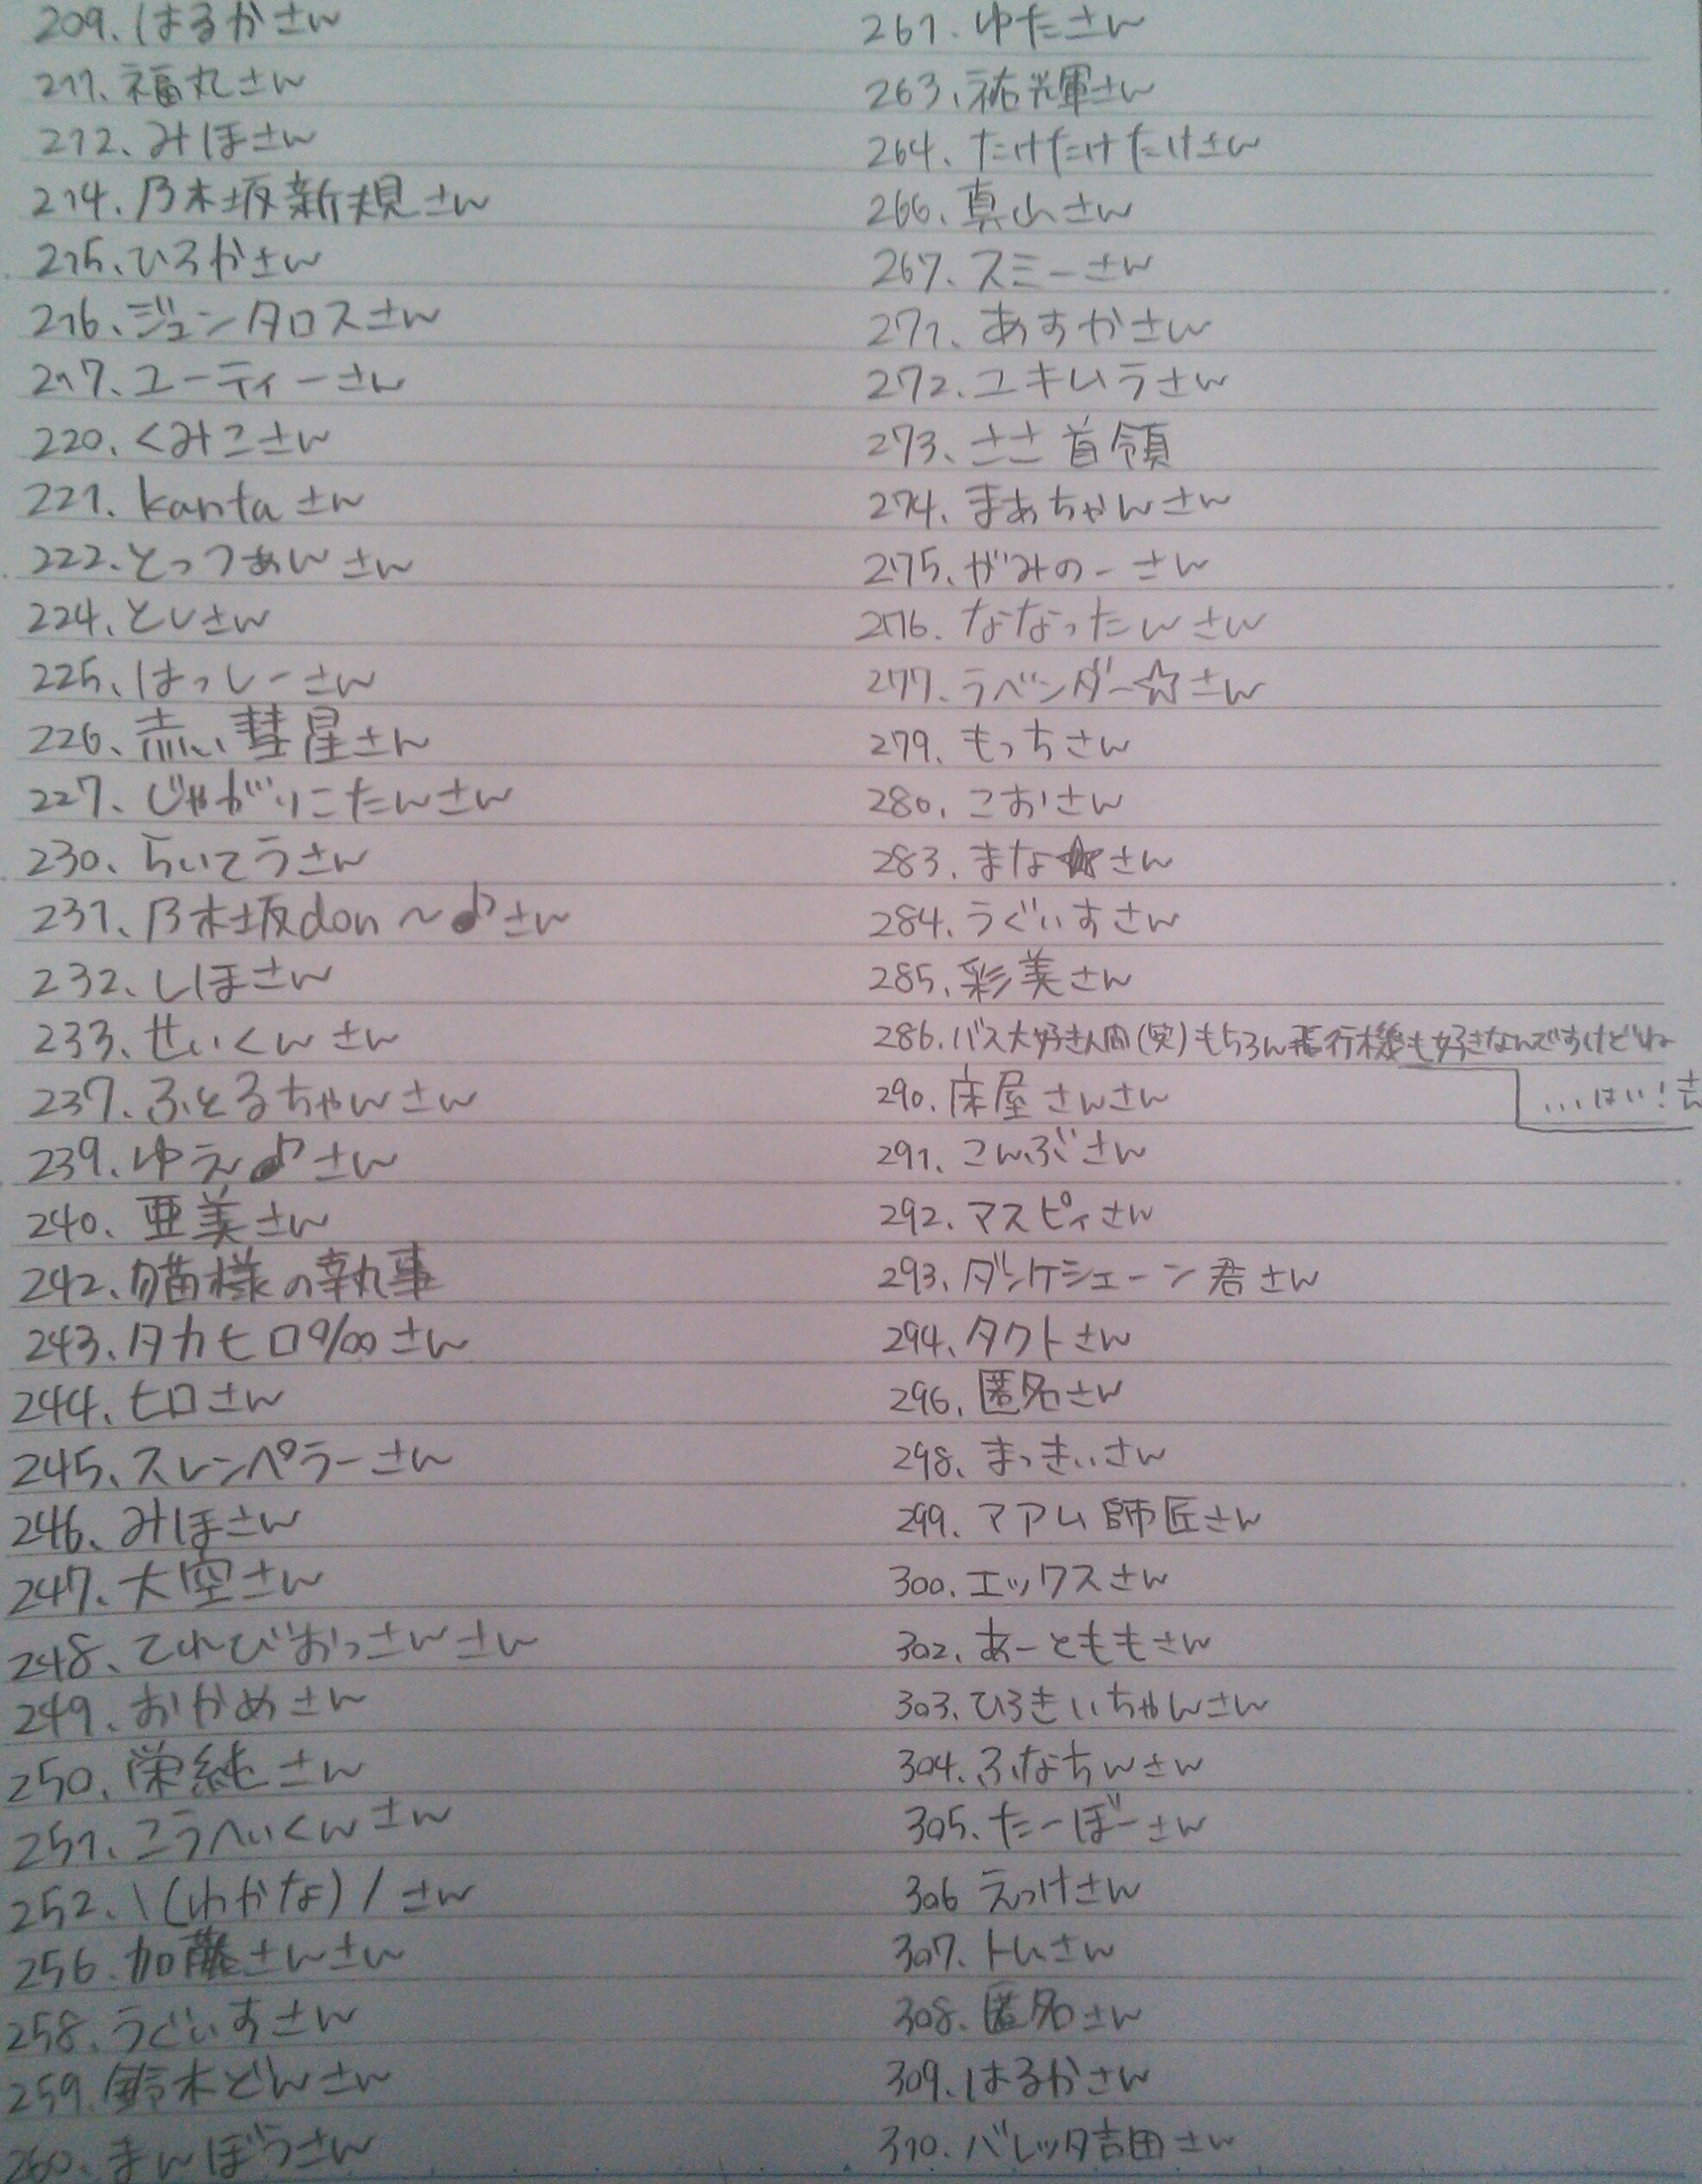 209、はるかさん
211、福丸さん
212、みほさん
214、乃木坂新規さん
215、ひろかさん
216、ジュンタロスさん
217、ユーティーさん
220、くみこさん
221、kantaさん
222、とっつあんさん
224、としさん
225、はっしーさん
226、赤い彗星さん
227、じゃがりこたんさん
230、らいてうさん
231、乃木坂don～♪さん
232、しほさん
233、せいくんさん
237、ふとるちゃんさん
239、ゆえ♪さん
240、亜美さん
242、猫様の執事
243、タカヒロ%さん
244、ヒロさん
245、スレンペラーさん
246、みほさん
247、大空さん
248、てれびおっさんさん
249、おかめさん
250、栄純さん
251、こうへいくんさん
252、\(わかな)/さん
256、加藤さんさん
258、うぐいすさん
259、鈴木どんさん
260、まんぼうさん
261、ゆたさん
263、祐輝さん
264、たけたけたけさん
266、真山さん
267、スミーさん
271、あすかさん
272、ユキムラさん
273、ささ首領
274、まあちゃんさん
275、がみのーさん
276、ななったんさん
277、ラベンダー☆さん
279、もっちさん
280、こおさん
283、まな★さん
284、うぐいすさん
285、彩美さん
286、バス大好き人間(笑)もちろん飛行機も好きなんですけどね
…はい！さん
290、床屋さんさん
291、こんぶさん
292、マスピィさん
293、ダンケシェーン君さん
294、タクトさん
296、匿名さん
298、まっきぃさん
299、マアム師匠さん
300、エックスさん
302、あーとももさん
303、ひろきいちゃんさん
304、ふなちんさん
305、たーぼーさん
306 えっけさん
307、トムさん
308、匿名さん
309、はるかさん
310、バレッタ吉田さん